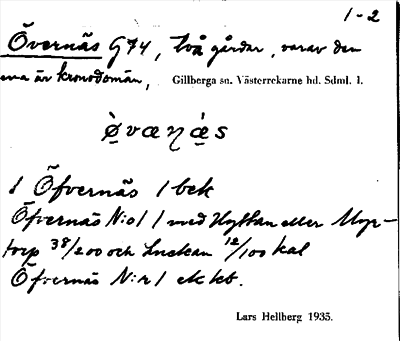 1-2
Övernäs G74, två gårdar, varav den
ena är kronodomän, Gillberga sn. Västerrekarne hd. Sdml. l.
ø̀væɳæ̀s
1 Öfvernäs 1 bek
Öfvernäs N:o 1 1 med Hyttan eller Myr-
torp 38/200 och Luckan 12/100 kal
Öfvernäs N:r 1 ek kb.
Lars Hellberg 1935.